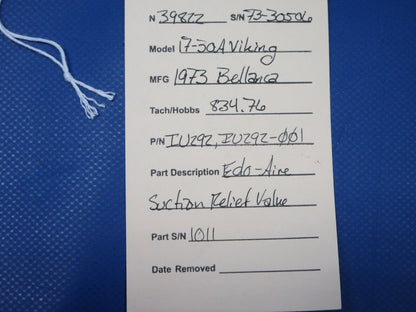 N 39822 S/N 73-30506
Model 17-30A Viking
MFG 1973 Bellanca
Tach/Hobbs 834.76
P/N IU292, IU292-001
Part Description Edo-Aire
Suction Relief Valve
Part S/N 1011
Date Removed